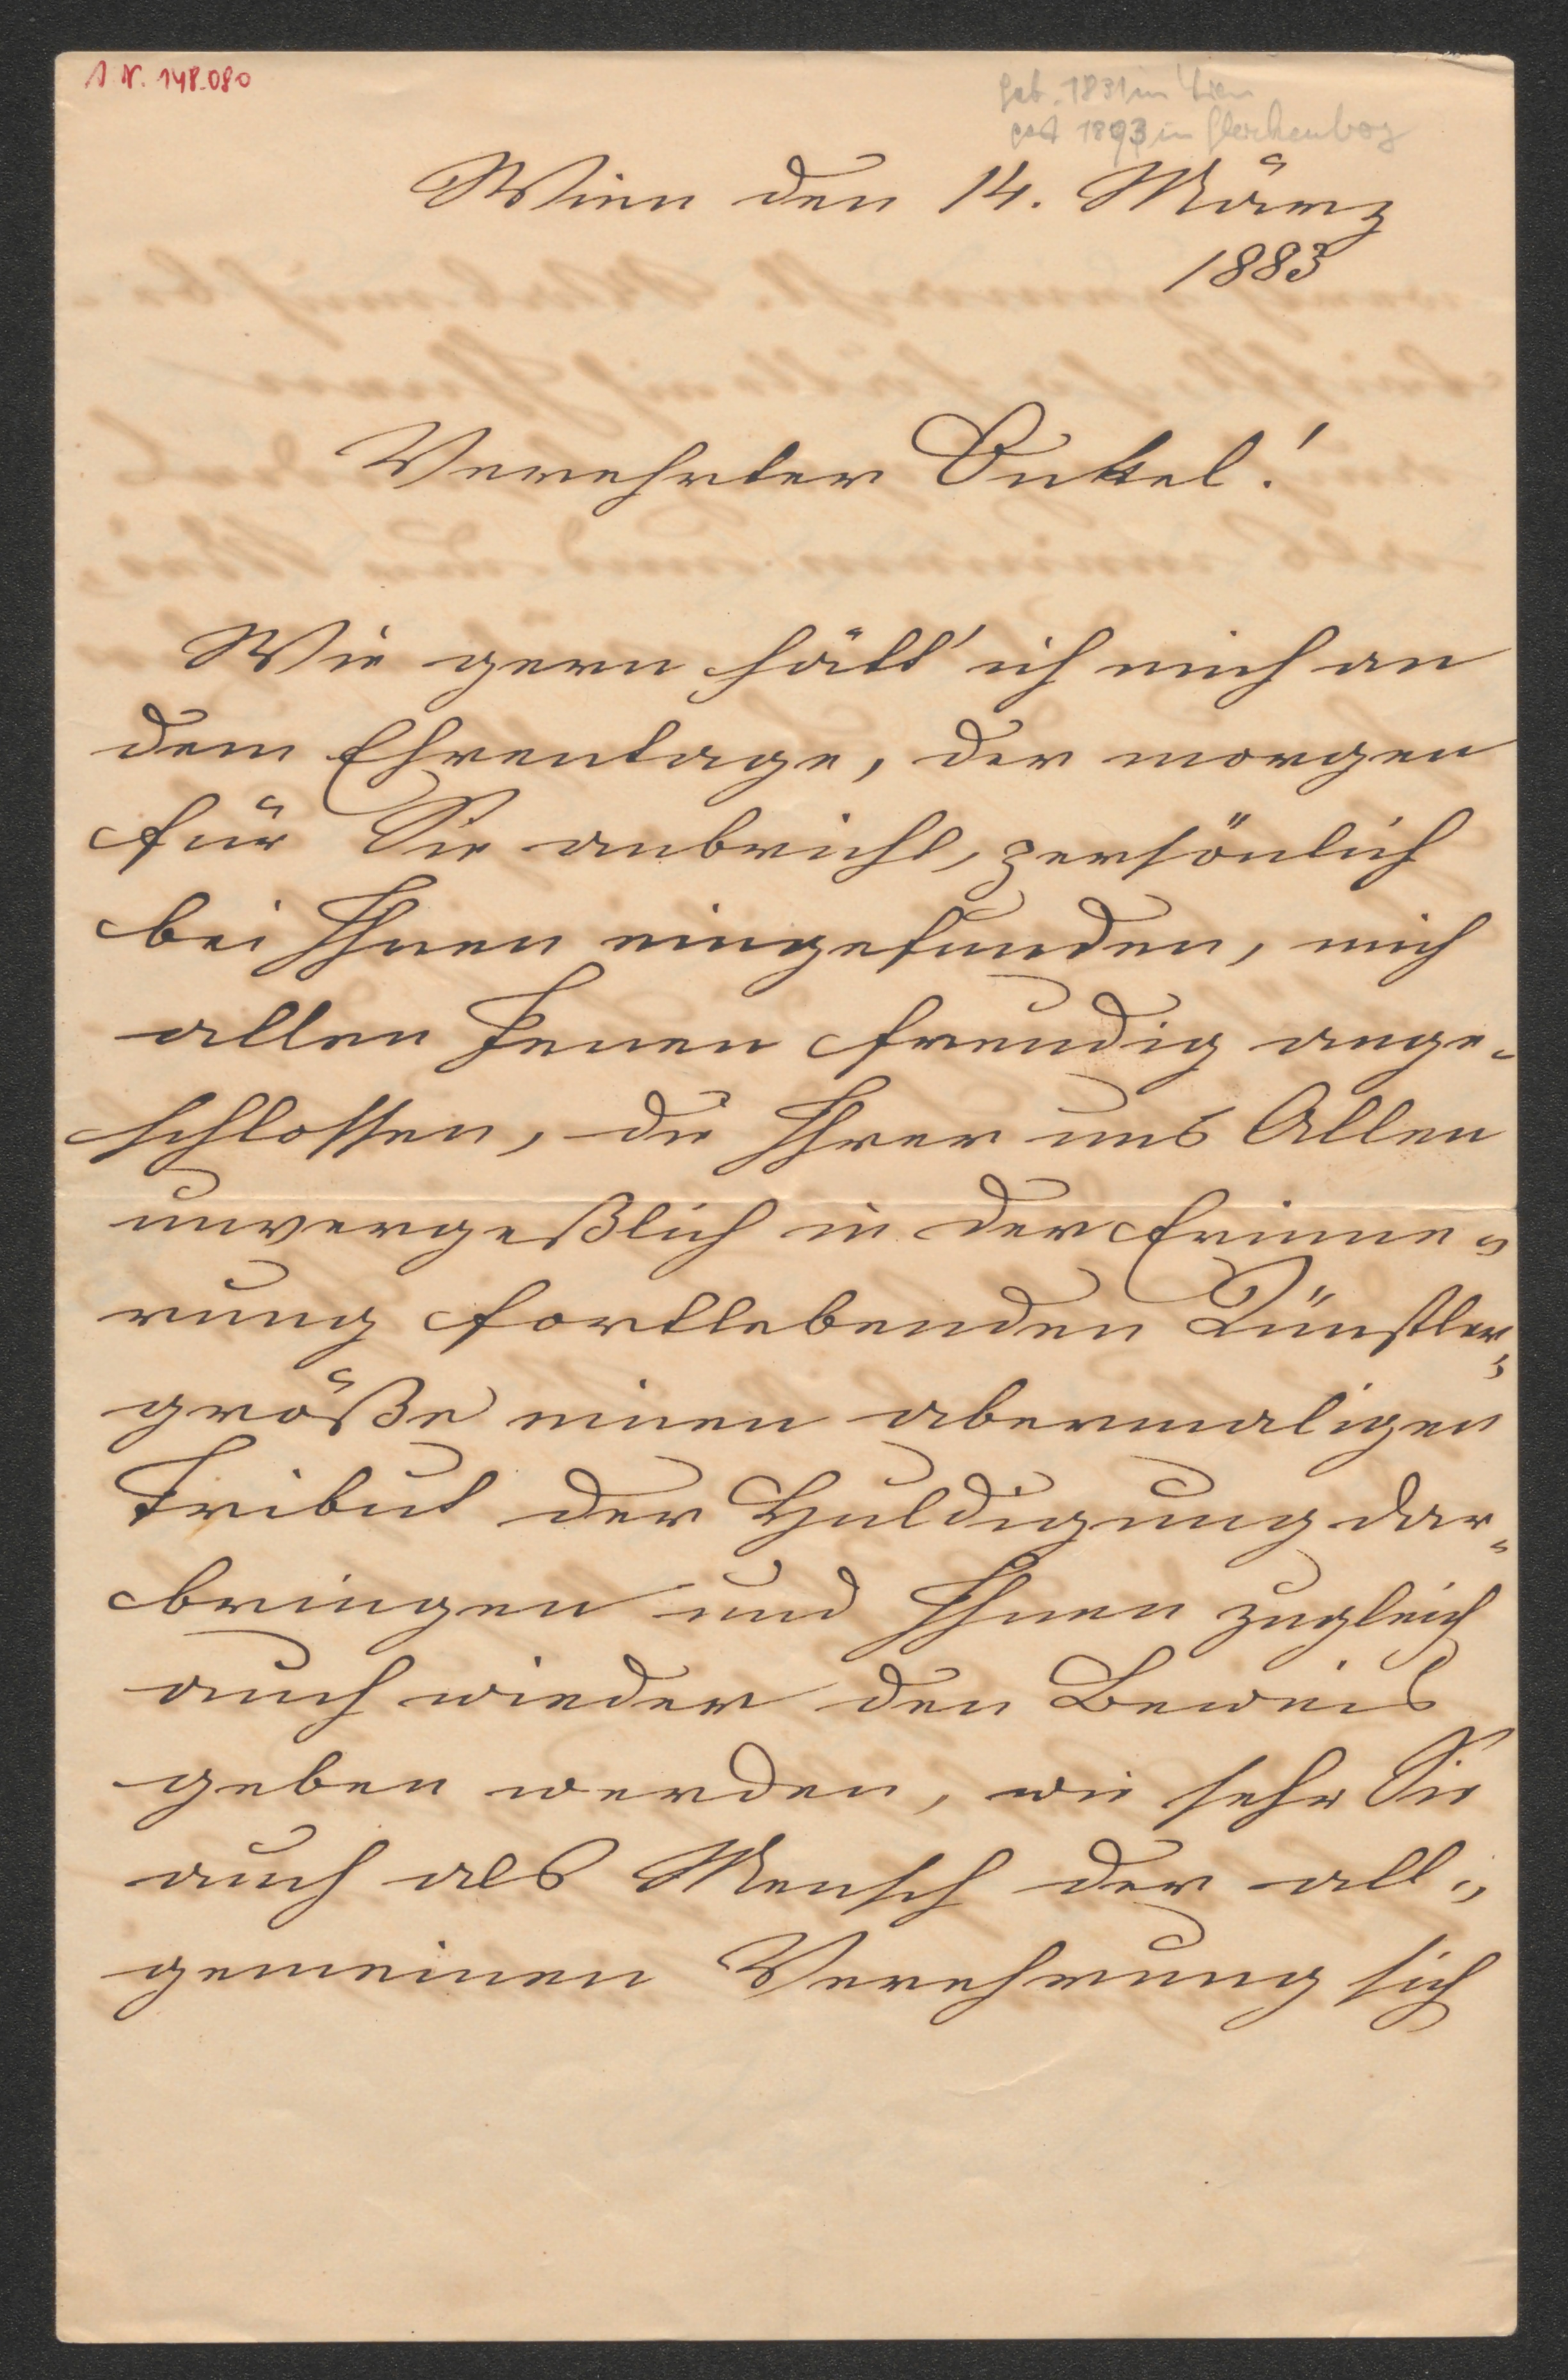 I N. 148.080
geb. 1831 in Wien
gest 1893 in Gleichenberg
Wien den 14. März
1883
Verehrter Onkel!
Wie gern hätt' ich mich an
dem Ehrentage, der morgen
für Sie anbricht, persönlich
bei Ihnen eingefunden, mich
allen Jenen freudig ange-
schlossen, die Ihrer uns Allen
unvergeßlich in der Erinne-
rung fortlebenden Künstler-
größe einen abermaligen
Tribut der Huldigung dar-
bringen und Ihnen zugleich
auch wieder den Beweis
geben werden, wie sehr Sie
auch als Mensch der all-
gemeinen Verehrung sich